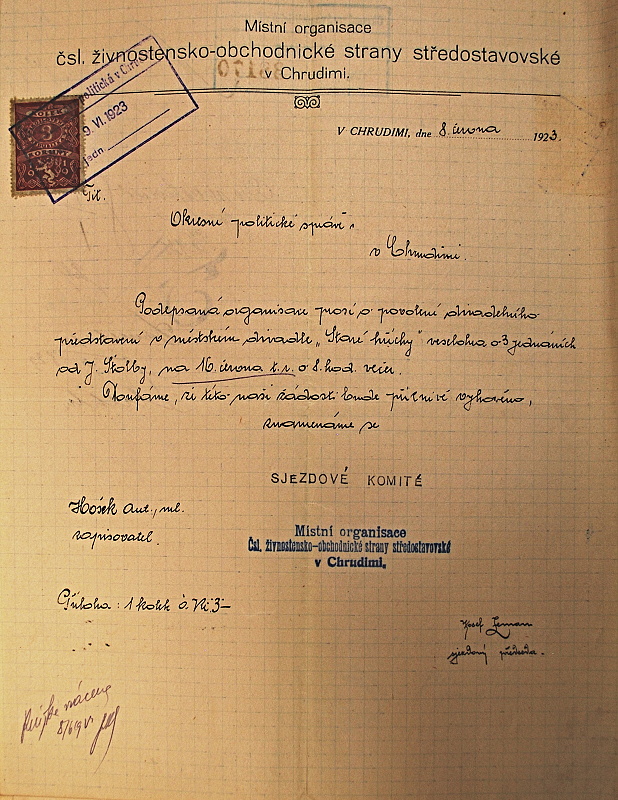 Místní organisace
čsl. živnostensko-obchodnické strany středostavovské
v Chrudimi.
9. VI. 1923
V CHRUDIMI, dne 8. června 1923.
Tit.
Okresní politické správě
v Chrudimi.
Podepsaná organisace prosí o povolení divadelního
představení v městském divadle „Staré hříchy" veselohra o 3 jednáních
od J. Štolby, na 16. června t.r. o 8. hod. večer.
Doufáme, že této naší žádosti bude příznivě vyhověno,
znamenáme se
SJEZDOVÉ KOMITÉ
Hošek Ant., ml.
zapisovatel.
Místní organisace
Čsl. živnostensko-obchodnické strany středostavovské
v Chrudimi.
Příloha: 1 kolek á Kč 3–
Josef Zeman
sjezdový předseda.